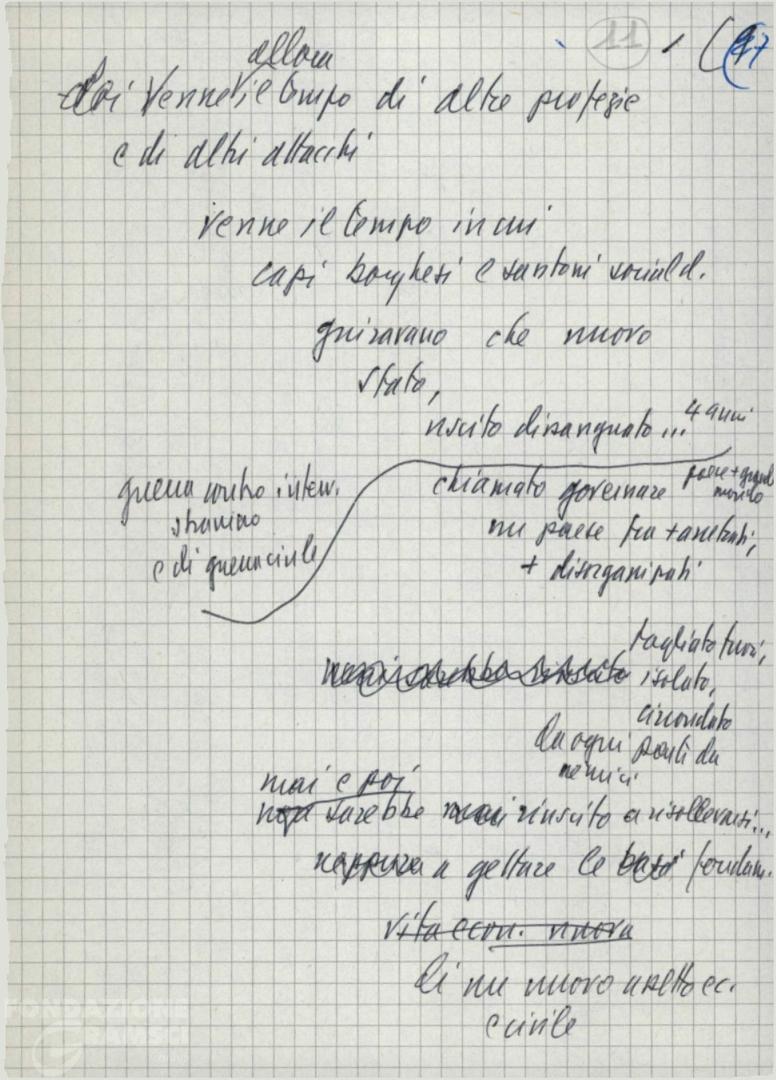 11 47
allora
Poi venne il tempo di altre profezie
e di altri attacchi
venne il tempo in cui
capi borghesi e santoni sociald.
giuravano che nuovo
Stato,
uscito dissanguato... 4 anni
guerra contro interv.
straniero
e di guerra civile
chiamato governare paese + grand mondo
un paese fra + arretrati,
+ disorganizzati
tagliato fuori,
mai sarebbe riuscito isolato,
circondato
da ogni parti da
nemici
mai e poi
non sarebbe mai riuscito a risollevarsi...
neppure a gettare le basi fondam.
vita econ. nuova
di un nuovo assetto ec.
e civile
FONDAZIONE
GRAMSCI